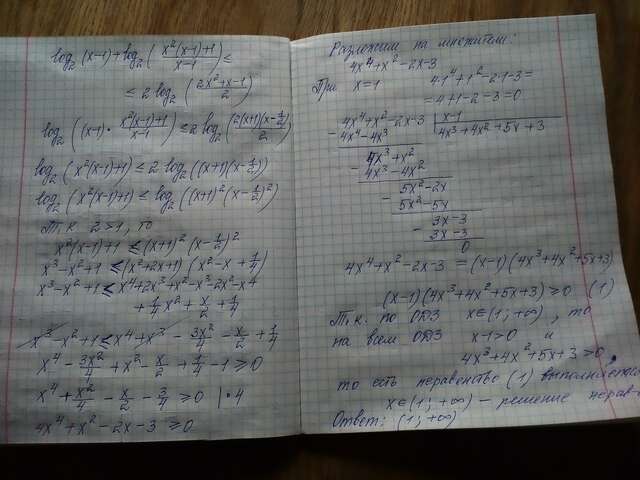 log₂(x-1)+log₂( (x²(x-1)+1)/(x-1) ) ≤
≤ 2 log₂( (2x²+x-1)/2 )
log₂((x-1)· (x²(x-1)+1)/(x-1)) ≤ 2 log₂( 2(x+1)(x-1/2)/2 )
log₂(x²(x-1)+1) ≤ 2 log₂((x+1)(x-1/2))
log₂(x²(x-1)+1) ≤ log₂((x+1)²(x-1/2)²)
Т.к. 2>1, то
x²(x-1)+1 ≤ (x+1)²(x-1/2)²
x³-x²+1 ≤ (x²+2x+1)(x²-x+1/4)
x³-x²+1 ≤ x⁴+2x³+x²-x³-2x²-x+
+1/4 x²+x/2+1/4
x³-x²+1 ≤ x⁴+x³-3x²/4-x/2+1/4
x⁴-3x²/4+x²-x/2+1/4-1 ≥ 0
x⁴+x²/4-x/2-3/4 ≥ 0 |·4
4x⁴+x²-2x-3 ≥ 0
Разложим на множители:
4x⁴+x²-2x-3
При x=1 4·1⁴+1²-2·1-3=
=4+1-2-3=0
4x⁴+x²-2x-3 | x-1
- 4x⁴-4x³ 4x³+4x²+5x+3
4x³+x²
- 4x³-4x²
5x²-2x
- 5x²-5x
3x-3
- 3x-3
0
4x⁴+x²-2x-3 = (x-1)(4x³+4x²+5x+3)
(x-1)(4x³+4x²+5x+3) ≥ 0 (1)
Т.к. по ОДЗ x∈(1;+∞), то
на всем ОДЗ x-1>0 и
4x³+4x²+5x+3>0,
то есть неравенство (1) выполняется
x∈(1;+∞) – решение нерав-
Ответ: (1;+∞)